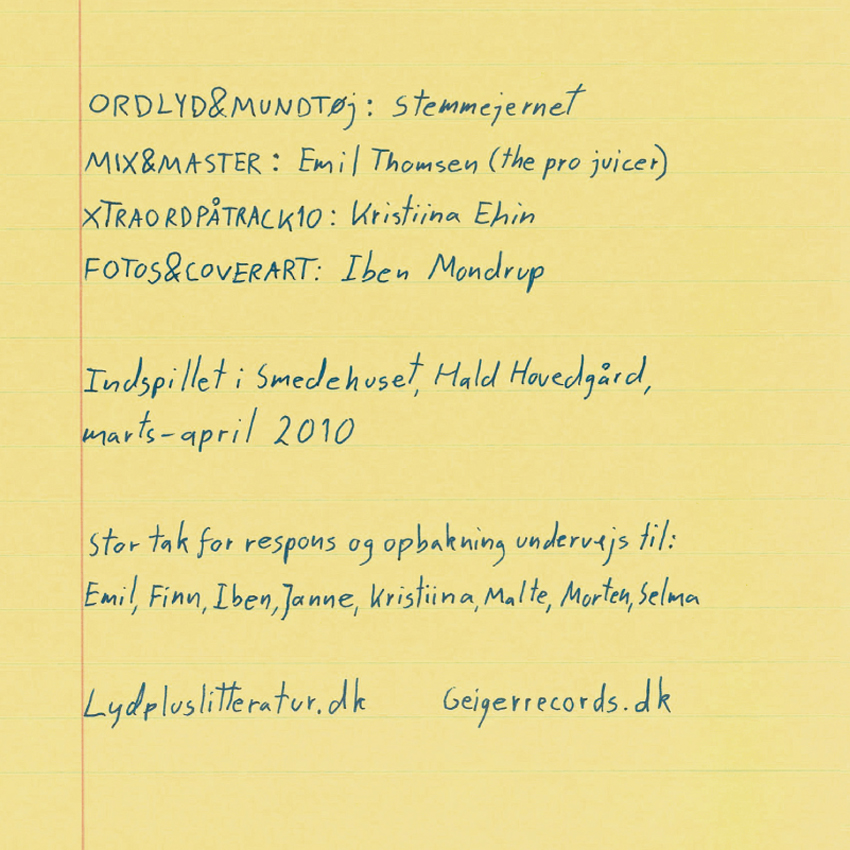 ORDLYD&MUNDTØj: Stemmejernet
MIX&MASTER: Emil Thomsen (the pro juicer)
XTRAORDPÅTRACK10: Kristiina Ehin
FOTOS&COVERART: Iben Mondrup
Indspillet i Smedehuset, Hald Hovedgård,
marts-april 2010
Stor tak for respons og opbakning undervejs til:
Emil, Finn, Iben, Janne, Kristiina, Malte, Morten, Selma
Lydpluslitteratur.dk Geigerrecords.dk